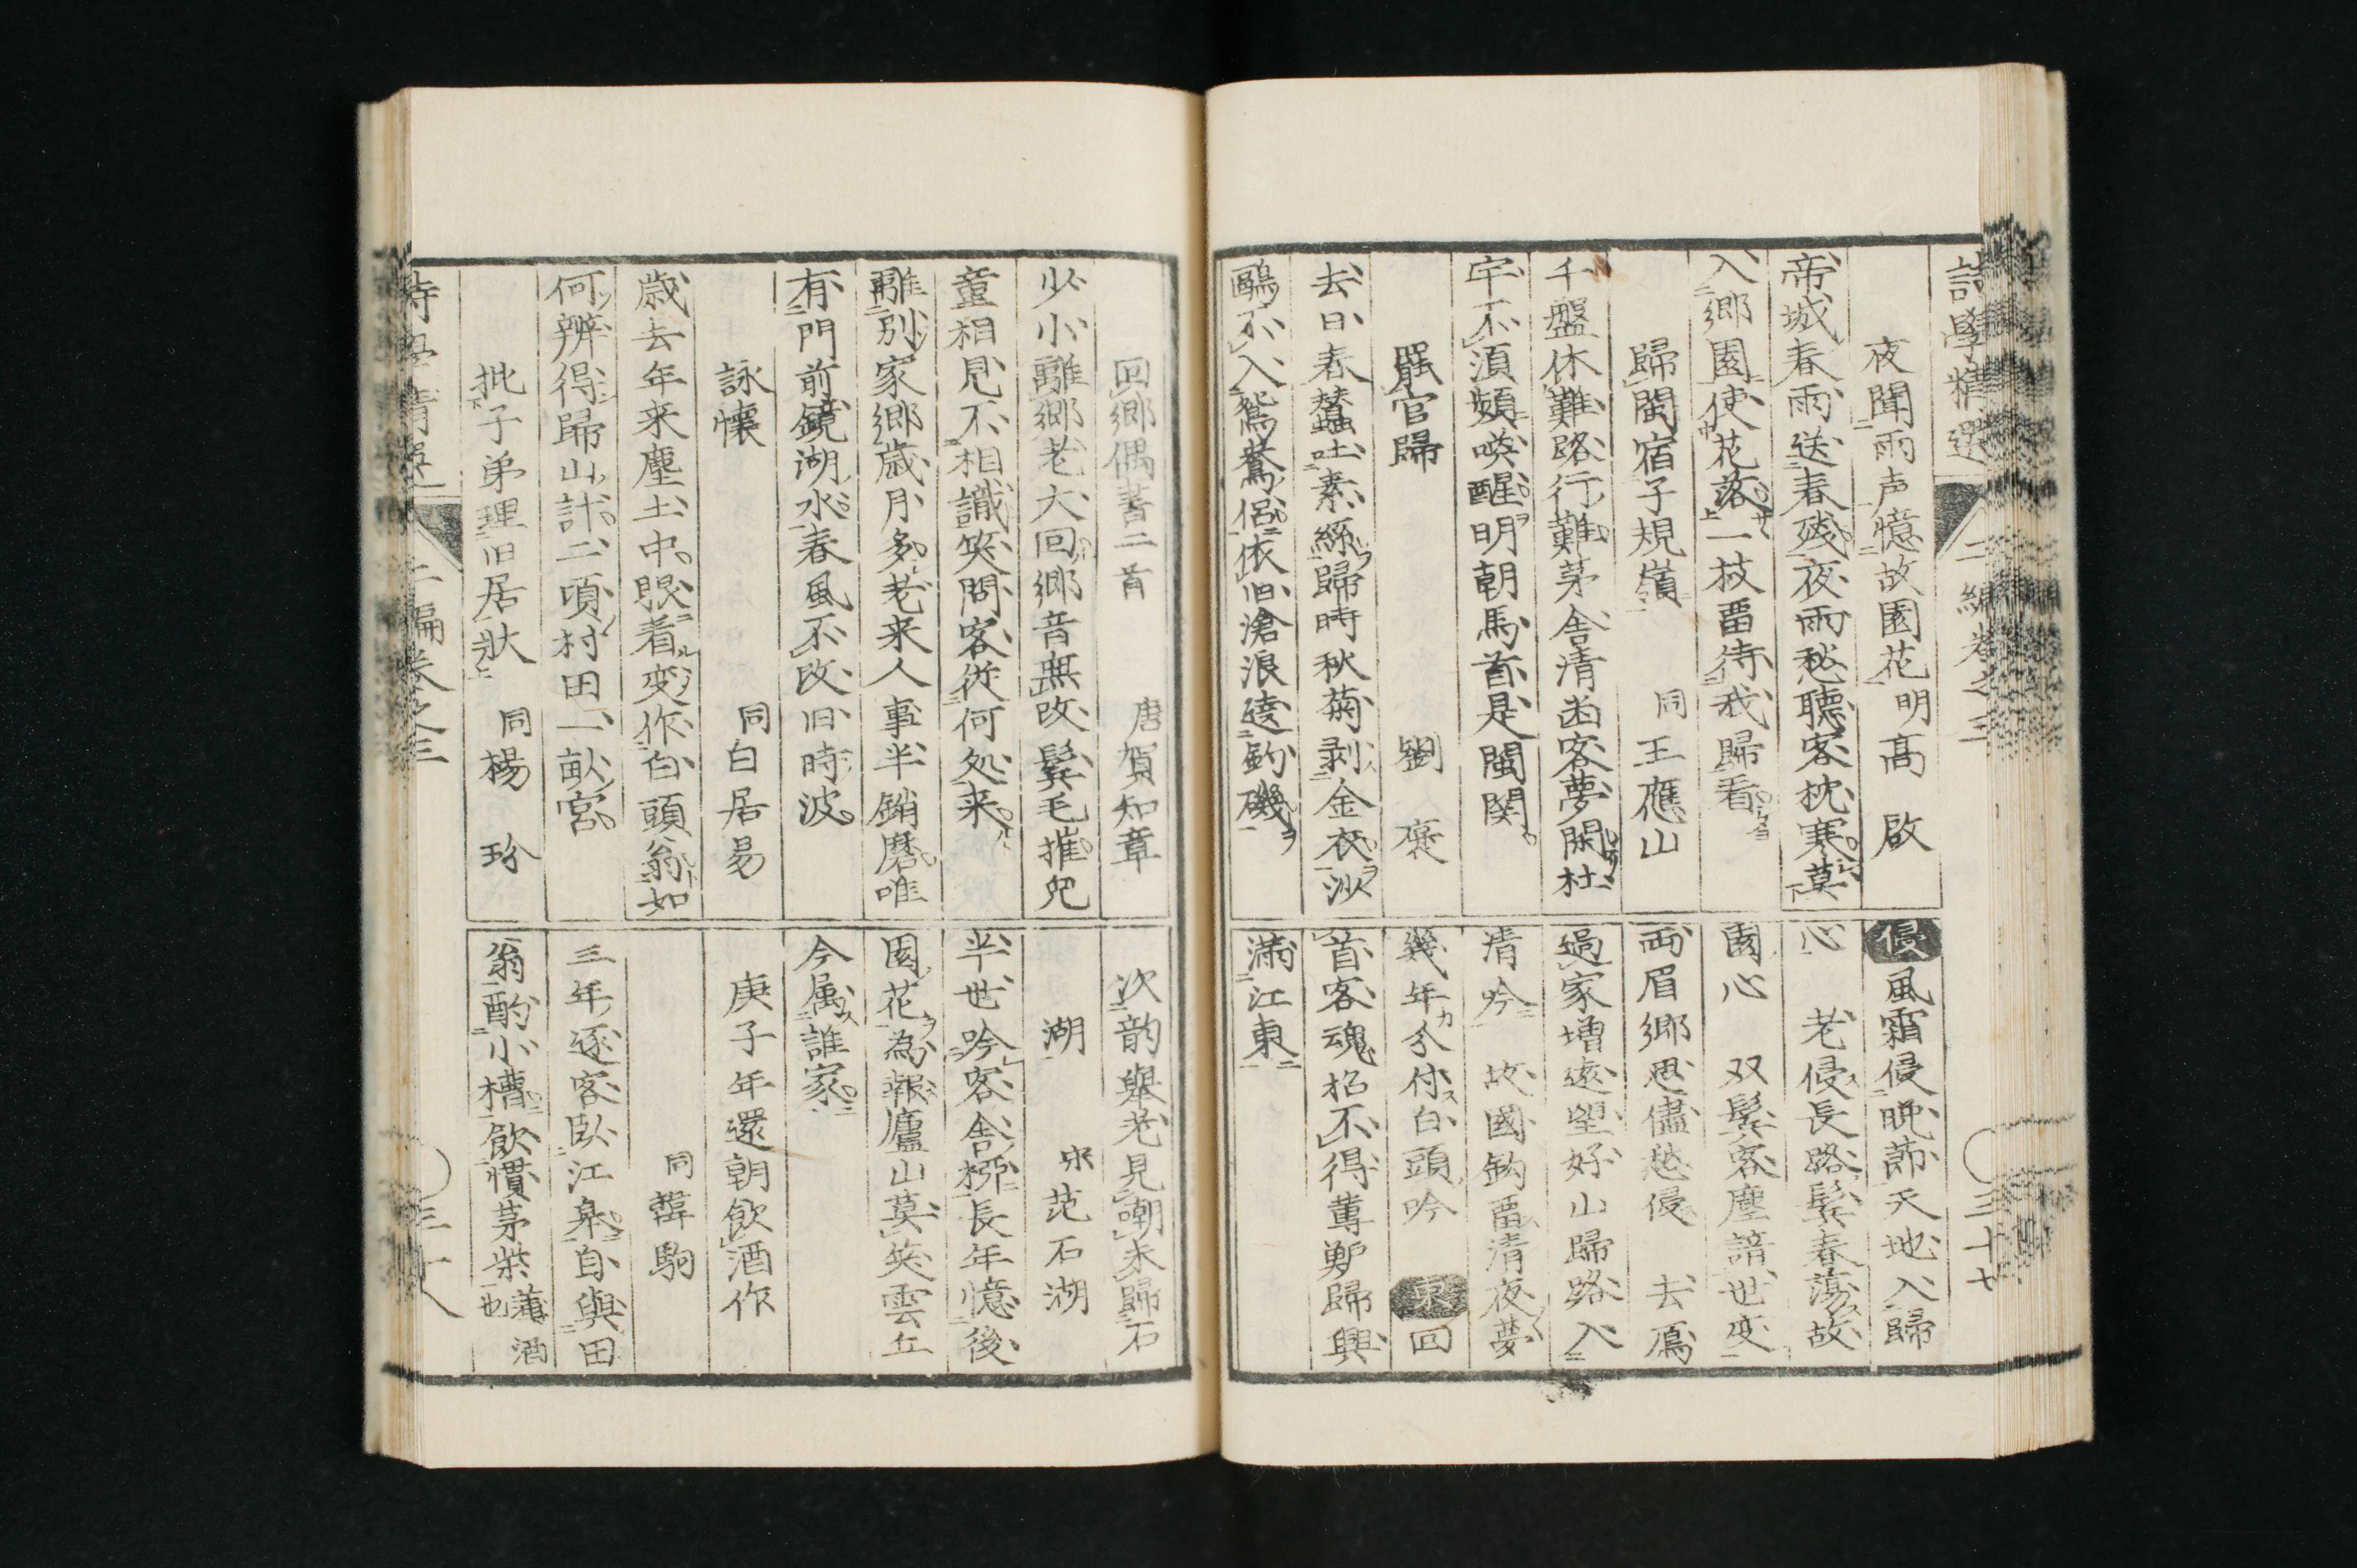 詩學精選 二編卷之三 三十七
夜聞雨声憶故園花 明高啟
帝城春雨送春殘夜雨愁聽客枕寒莫
入郷園使花落一枝畱待我歸看
歸閩宿子規嶺 同王應山
千盤休難路行難茅舎清幽客夢閑杜
宇不湏頻喚醒明朝馬首是閩関
罷官歸 劉褒
去日春蠶吐素絲歸時秋菊剥金衣沙
鷗不入鴛鴦侶依旧滄浪遶釣磯
侵 風霜侵晩節天地入歸
心 老侵長路鬢春蕩故
園心 双鬢客塵諳世変
両眉郷思儘愁侵 去鴈
過家増遠望好山歸路入
清吟 故國鈎畱清夜夢
幾年分付白頭吟 東 回
首客魂招不得蓴鱸歸興
滿江東
回郷偶書二首 唐賀知章
少小離郷老大回郷音無改鬢毛摧兒
童相見不相識笑問客從何処来
離別家郷歳月多老来人事半銷磨唯
有門前鏡湖水春風不改旧時波
詠懐 同白居易
歳去年来塵土中眼着変作白頭翁如
何辨得歸山計二頃村田一畝宮
批子弟理旧居狀 同楊玢
次韵舉老見嘲未歸石
湖 宋范石湖
半世吟客舎栁長年憶後
園花為報廬山莫笑雲丘
今属誰家
庚子年還朝飲酒作
同韓駒
三年逐客臥江皋自與田
翁酌小槽飲慣茅柴 酒也
詩學精選 二編卷之三 三十八